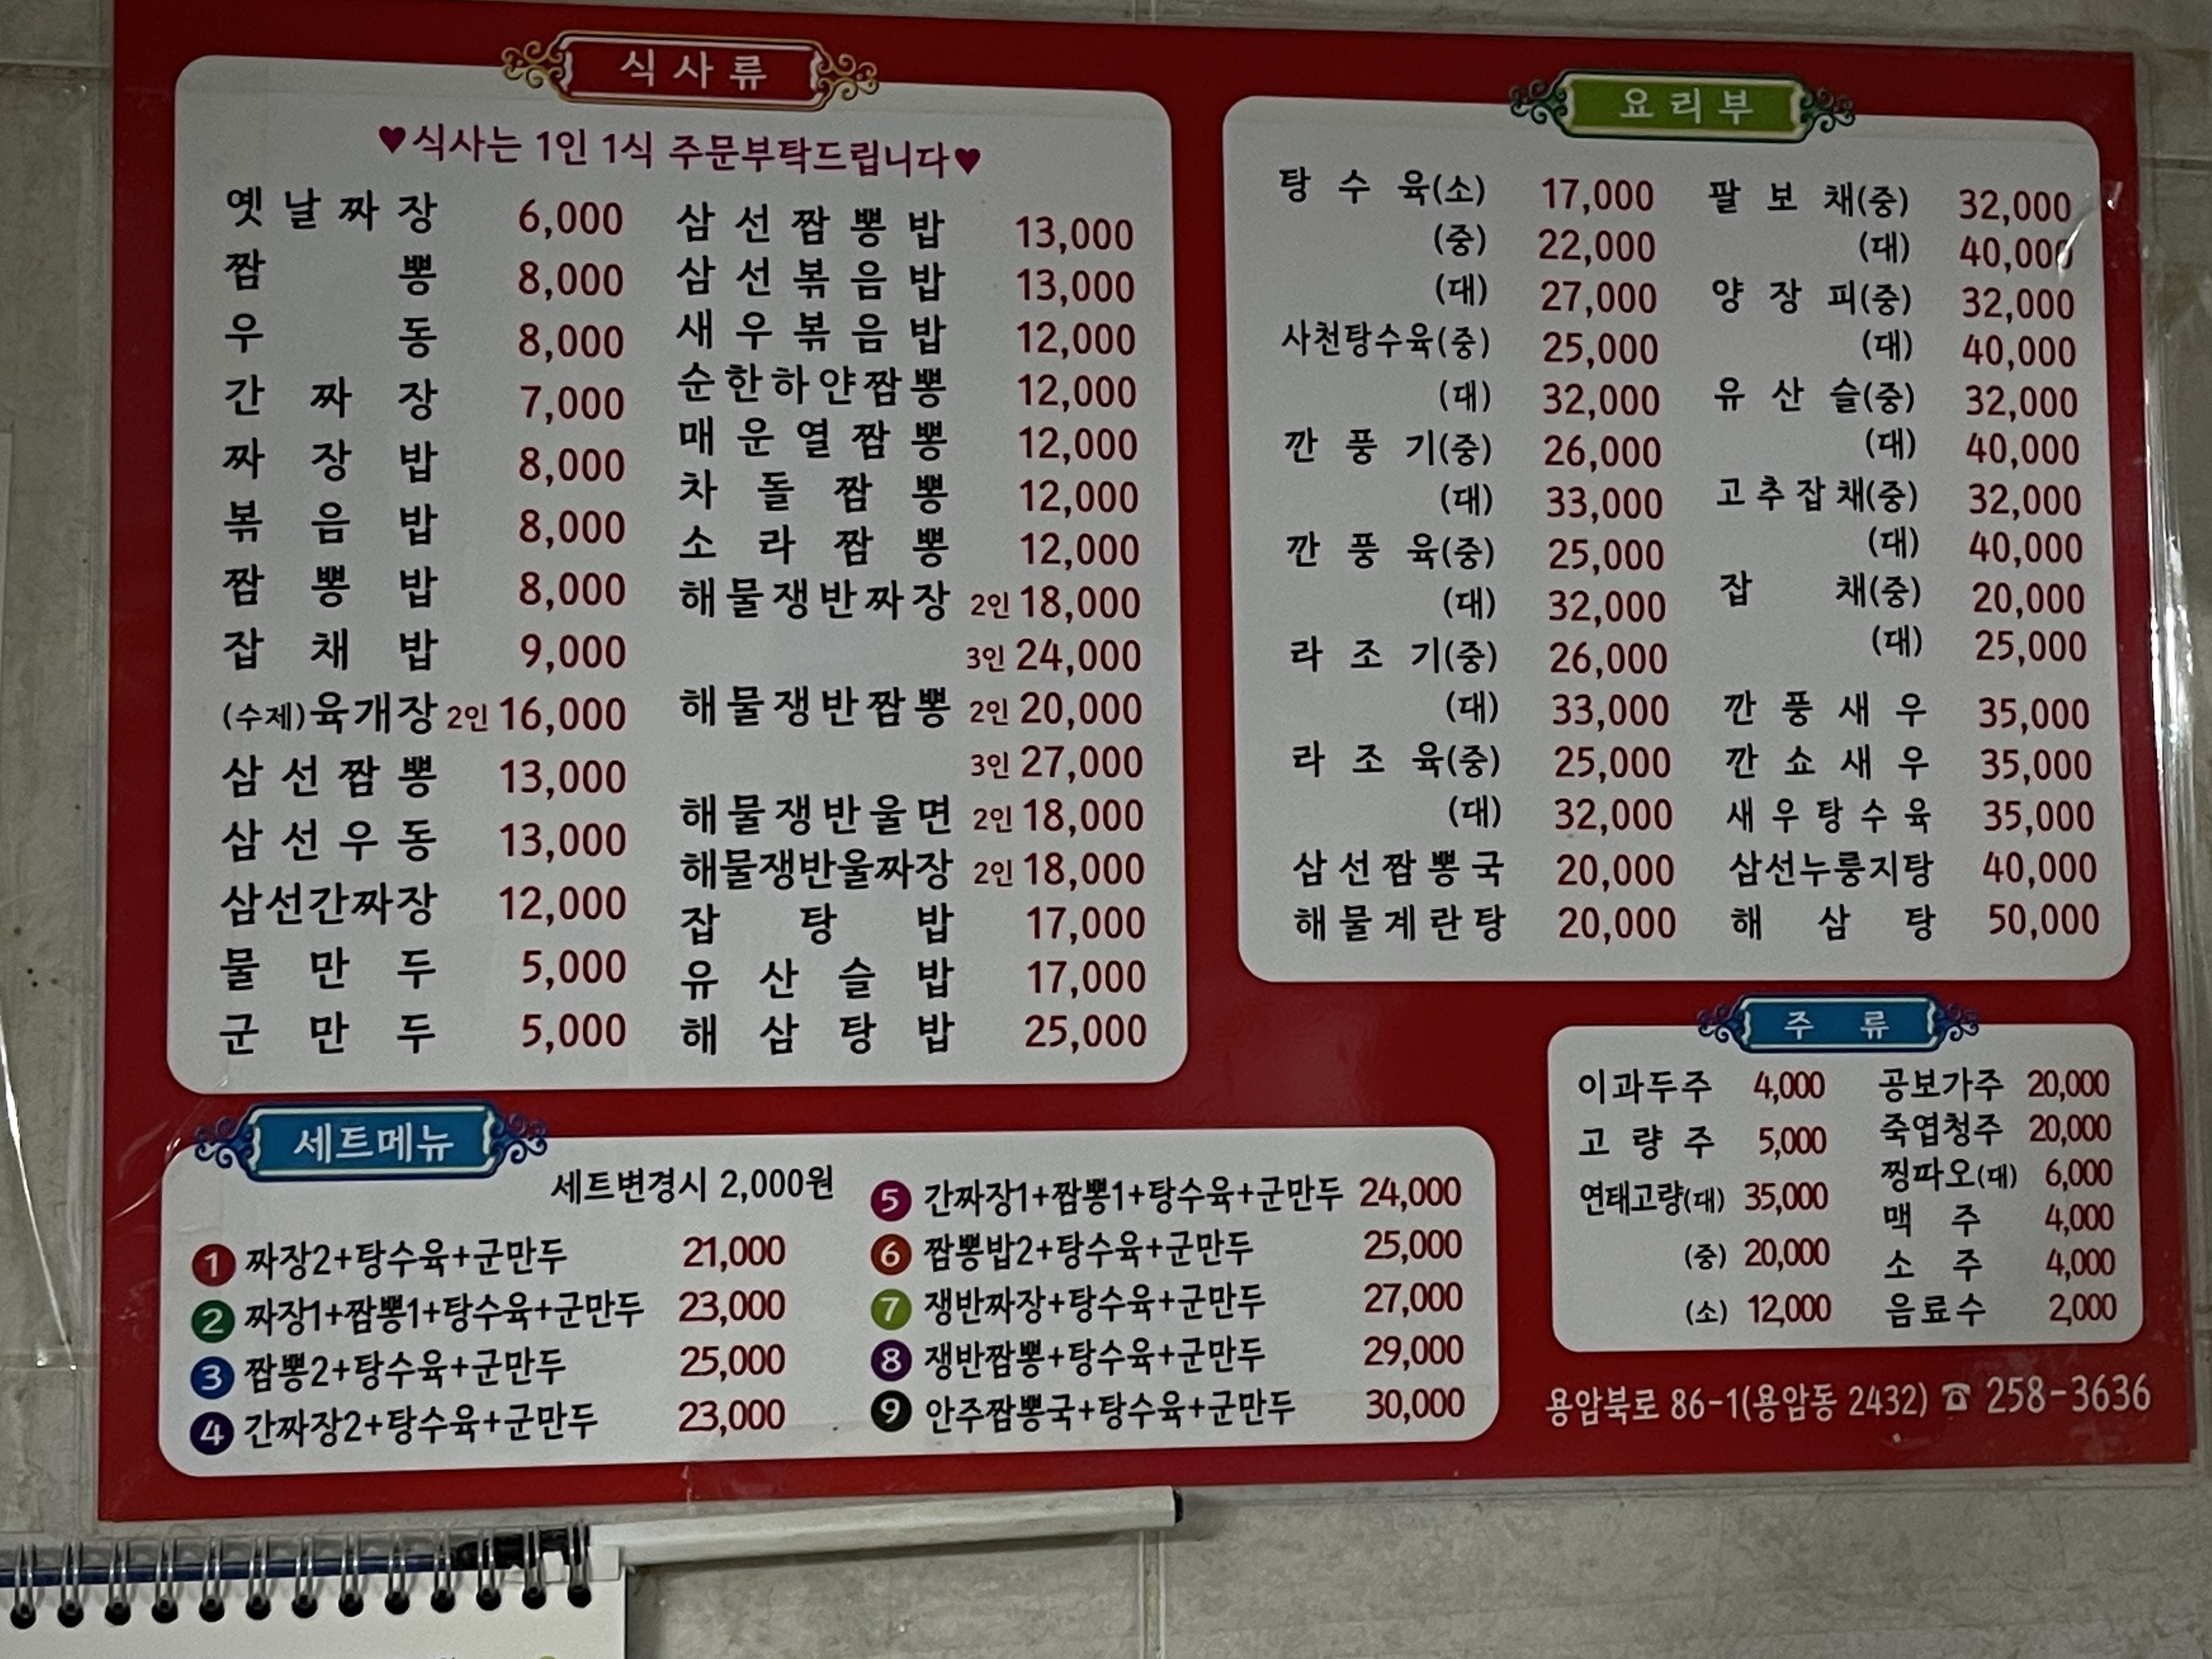 식사류
♥식사는 1인 1식 주문부탁드립니다♥
옛날짜장 6,000
짬뽕 8,000
우동 8,000
간짜장 7,000
짜장밥 8,000
볶음밥 8,000
짬뽕밥 8,000
잡채밥 9,000
(수제)육개장 2인 16,000
삼선짬뽕 13,000
삼선우동 13,000
삼선간짜장 12,000
물만두 5,000
군만두 5,000
삼선짬뽕밥 13,000
삼선볶음밥 13,000
새우볶음밥 12,000
순한하얀짬뽕 12,000
매운열짬뽕 12,000
차돌짬뽕 12,000
소라짬뽕 12,000
해물쟁반짜장 2인 18,000
3인 24,000
해물쟁반짬뽕 2인 20,000
3인 27,000
해물쟁반울면 2인 18,000
해물쟁반울짜장 2인 18,000
잡탕밥 17,000
유산슬밥 17,000
해삼탕밥 25,000
요리부
탕수육(소) 17,000
(중) 22,000
(대) 27,000
사천탕수육(중) 25,000
(대) 32,000
깐풍기(중) 26,000
(대) 33,000
깐풍육(중) 25,000
(대) 32,000
라조기(중) 26,000
(대) 33,000
라조육(중) 25,000
(대) 32,000
삼선짬뽕국 20,000
해물계란탕 20,000
팔보채(중) 32,000
(대) 40,000
양장피(중) 32,000
(대) 40,000
유산슬(중) 32,000
(대) 40,000
고추잡채(중) 32,000
(대) 40,000
잡채(중) 20,000
(대) 25,000
깐풍새우 35,000
깐쇼새우 35,000
새우탕수육 35,000
삼선누룽지탕 40,000
해삼탕 50,000
세트메뉴
세트변경시 2,000원
1 짜장2+탕수육+군만두 21,000
2 짜장1+짬뽕1+탕수육+군만두 23,000
3 짬뽕2+탕수육+군만두 25,000
4 간짜장2+탕수육+군만두 23,000
5 간짜장1+짬뽕1+탕수육+군만두 24,000
6 짬뽕밥2+탕수육+군만두 25,000
7 쟁반짜장+탕수육+군만두 27,000
8 쟁반짬뽕+탕수육+군만두 29,000
9 안주짬뽕국+탕수육+군만두 30,000
주류
이과두주 4,000
고량주 5,000
연태고량(대) 35,000
(중) 20,000
(소) 12,000
공보가주 20,000
죽엽청주 20,000
찡파오(대) 6,000
맥주 4,000
소주 4,000
음료수 2,000
용암북로 86-1(용암동 2432) ☎ 258-3636